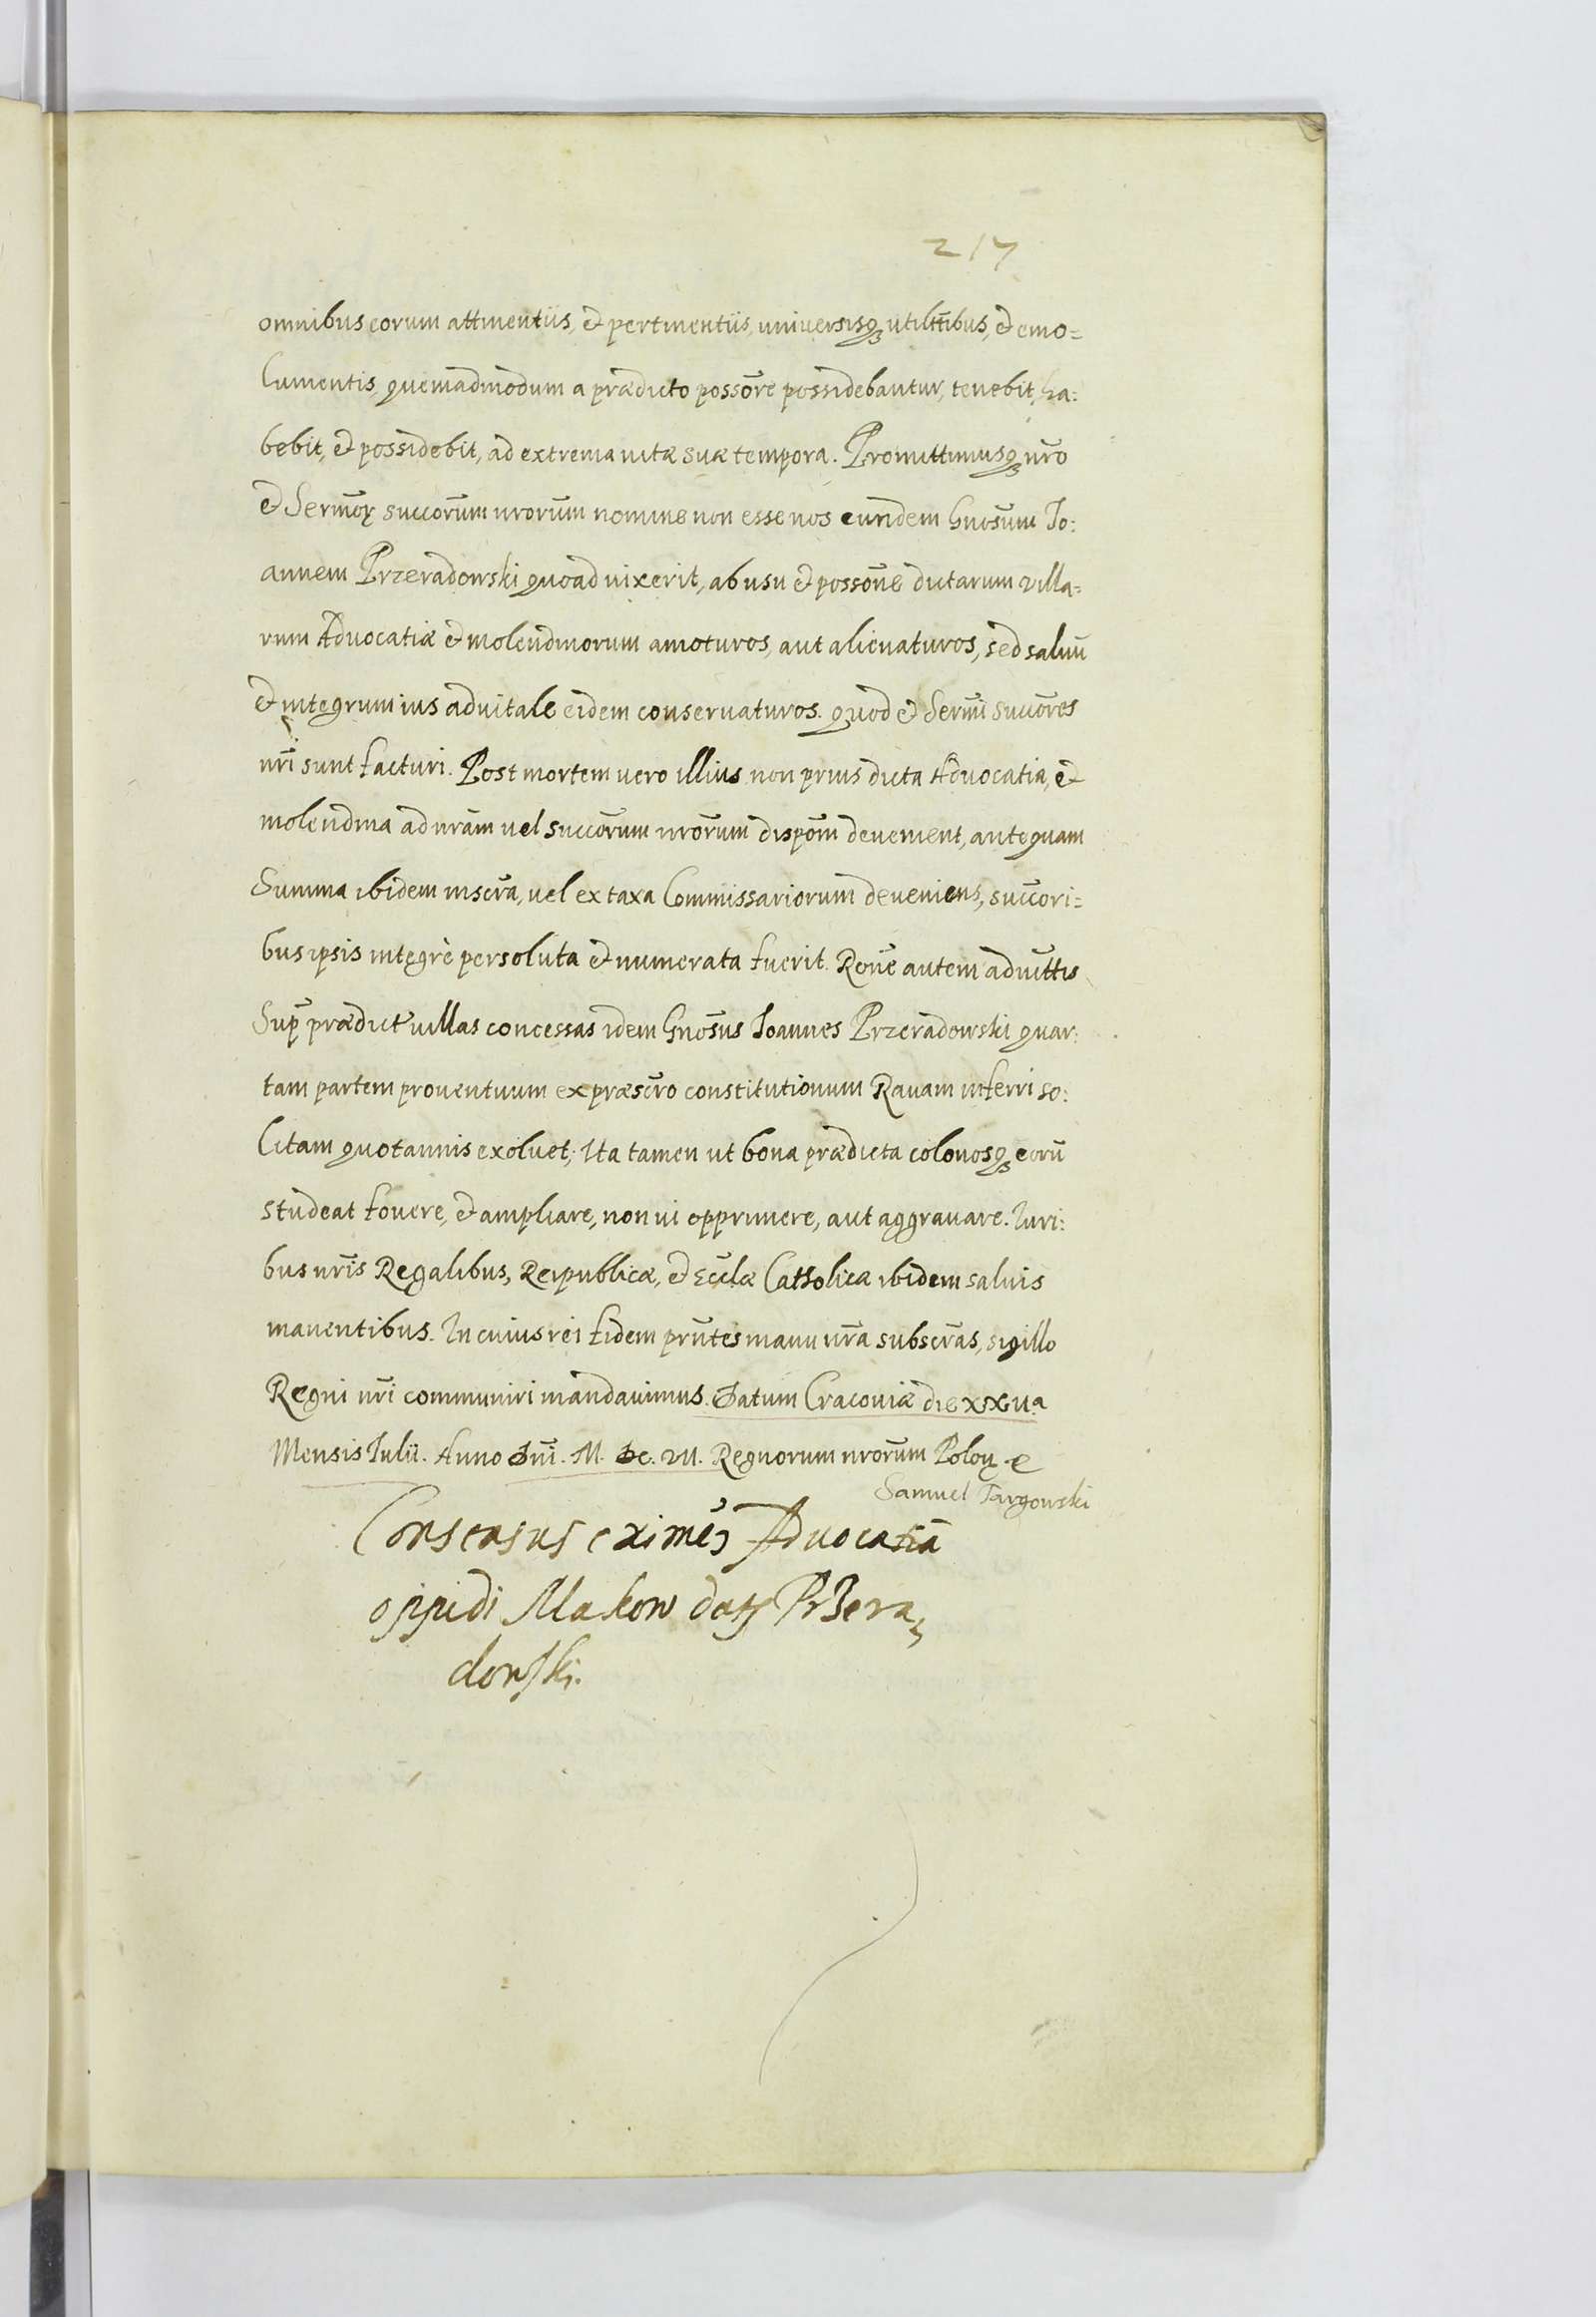 217
omnibus eorum attinentiis, et pertinentiis, universisq3 utilitt̃ibus, et emo=
lumentis, quemadmodum a prædicto possõre possidebantur, tenebit, ha:
bebit, et possidebit, ad extrema vitæ suæ tempora. Promittimusq3 nr̃o
et Sermõr̃ succõrum nrorũm nomine non esse nos eundem Gnõsum Io:
annem Przeradowski quoad vixerit, ab usu et possõne dictarum villa=
rum Advocatiæ et molendinorum amoturos, aut alienaturos, sed salvũ
et integrum ius advitale eidem conservaturos. quod et Serm̃i succõres
nr̃i sunt facturi. Post mortem vero illius non prius dicta Advocatia, et
molendina ad nrãm vel succõrum nrõrum dispõm devenient, antequam
Summa ibidem inscrã, vel ex taxa Commissariorum deveniens, succori=
bus ipsis integrè persoluta et numerata fuerit. Rõne autem advittis
Sup̃ prædict villas concessas idem Gnõsus Ioannes Przeradowski quar:
tam partem proventuum ex præscr̃o constitutionum Ravam inferri so:
litam quotannis exolvet; Ita tamen ut bona prædicta colonosq3 eorũ
studeat fovere, et ampliare, non vi opprimere, aut aggravare. Iuri:
bus nr̃is Regalibus, Reipublicæ, et Eccl̃æ Catholicæ ibidem salvis
manentibus. In cuius rei fidem pr̃ntes manu nr̃a subscrãs, sigillo
Regni nr̃i communiri mandavimus. Datum Cracoviæ die xxva
Mensis Iulii. Anno Dñi. M. DC. VII. Regnorum nrorũm Polon̨ e
Samuel Targowski
Consensus eximẽ Advocatiã
oppidi Makow dat PrZera,
dowski.